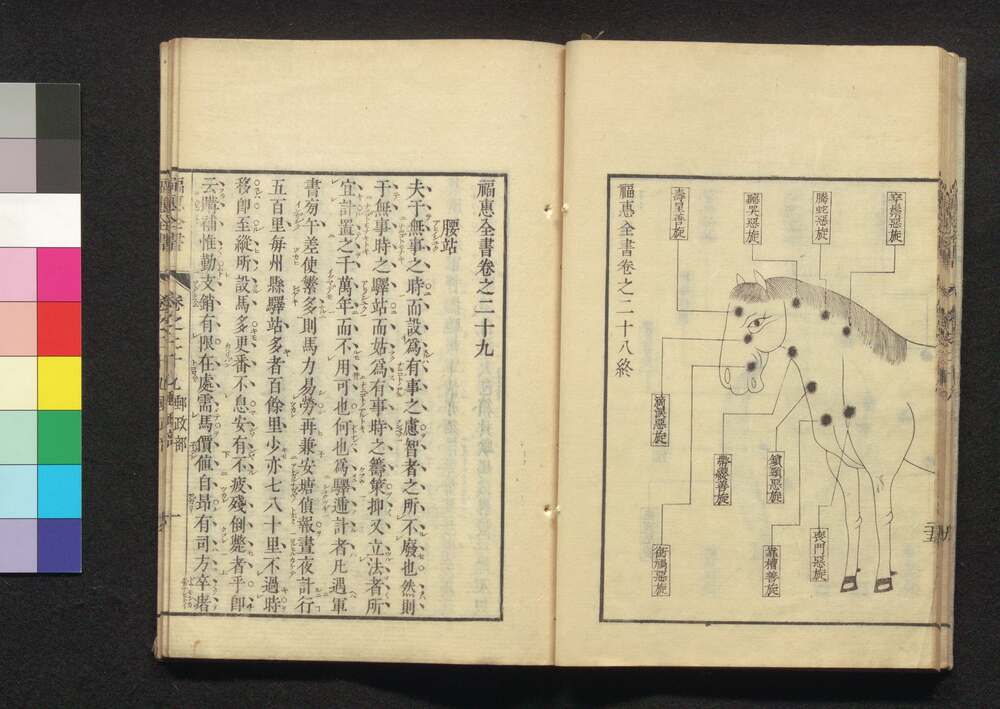 帶纓善旋
喪門惡旋
鎖頸惡旋
靠槽善旋
滴淚惡旋
啣禍惡旋
騰蛇惡旋
壽星善旋
福惠全書卷之二十八終
福惠全書卷之二十九
腰站
夫于無事之時而設爲有事之慮智者之所不廢也然則
于無事時之驛站而姑爲有事時之籌策抑又立法者所
宜計置之千萬年而不用可也何也爲驛遞計者凡遇軍
書旁午差使繁多則馬力易勞再兼安塘偵報晝夜計行
五百里每州縣驛站多者百餘里少亦七八十里不過時
移卽至縱所設馬多更番不息安有不疲殘倒斃者乎卽
云隨補惟勤支銷有限在處需馬價値自昂有司方卒堵
郵政部